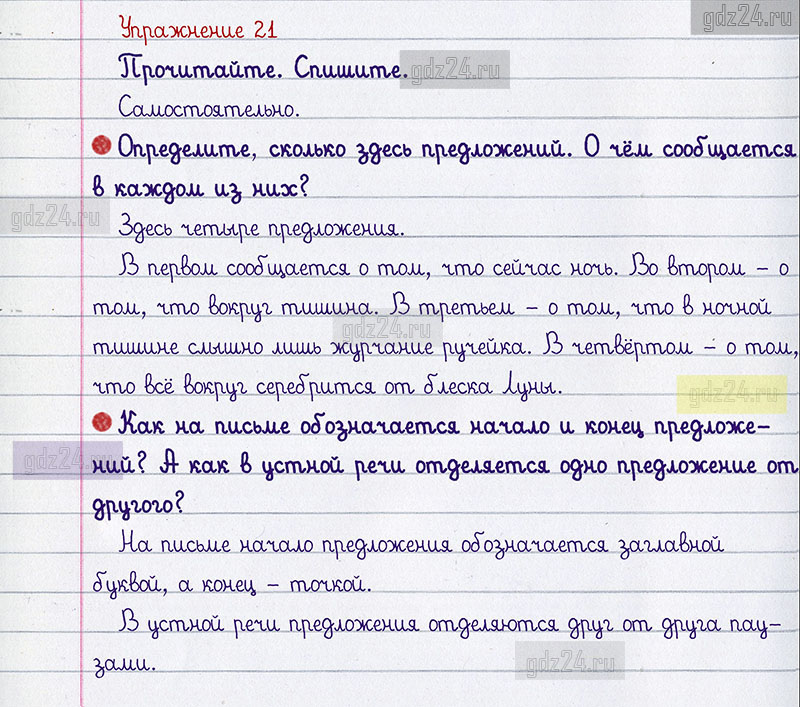 gdz24.ru
Упражнение 21
Прочитайте. Спишите.
gdz24.ru
Самостоятельно.
Определите, сколько здесь предложений. О чём сообщается
в каждом из них?
gdz24.ru
Здесь четыре предложения.
В первом сообщается о том, что сейчас ночь. Во втором – о
том, что вокруг тишина. В третьем – о том, что в ночной
gdz24.ru
тишине слышно лишь журчание ручейка. В четвёртом – о том,
что всё вокруг серебрится от блеска Луны.
gdz24.ru
Как на письме обозначается начало и конец предложе-
ний? А как в устной речи отделяется одно предложение от
gdz24.ru
другого?
На письме начало предложения обозначается заглавной
буквой, а конец – точкой.
В устной речи предложения отделяются друг от друга пау-
зами.
gdz24.ru